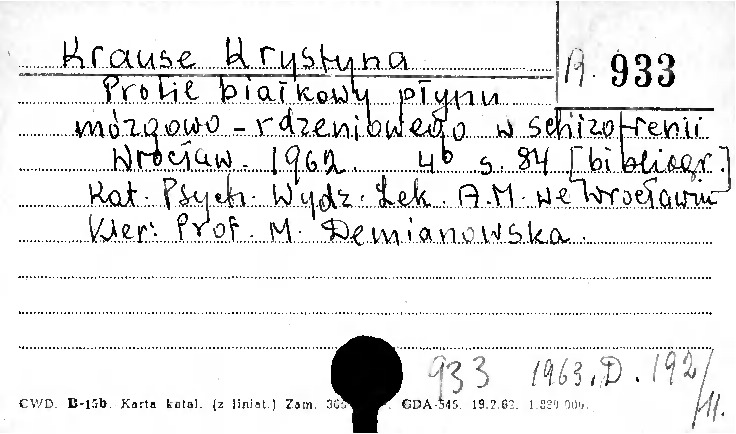 Krause Krystyna
R. 933
Profil białkowy płynu
mózgowo-rdzeniowego w schizofrenii
Wrocław. 1962. 4° s. 84 [bibliogr.]
Kat. Psych. Wydz. Lek. A.M. we Wrocławiu
Kier: Prof. M. Demianowska.
933 1963.D.192/II.
CWD. B-15b. Karta katal. (z liniat.) Zam. GDA-545. 19.2.62.